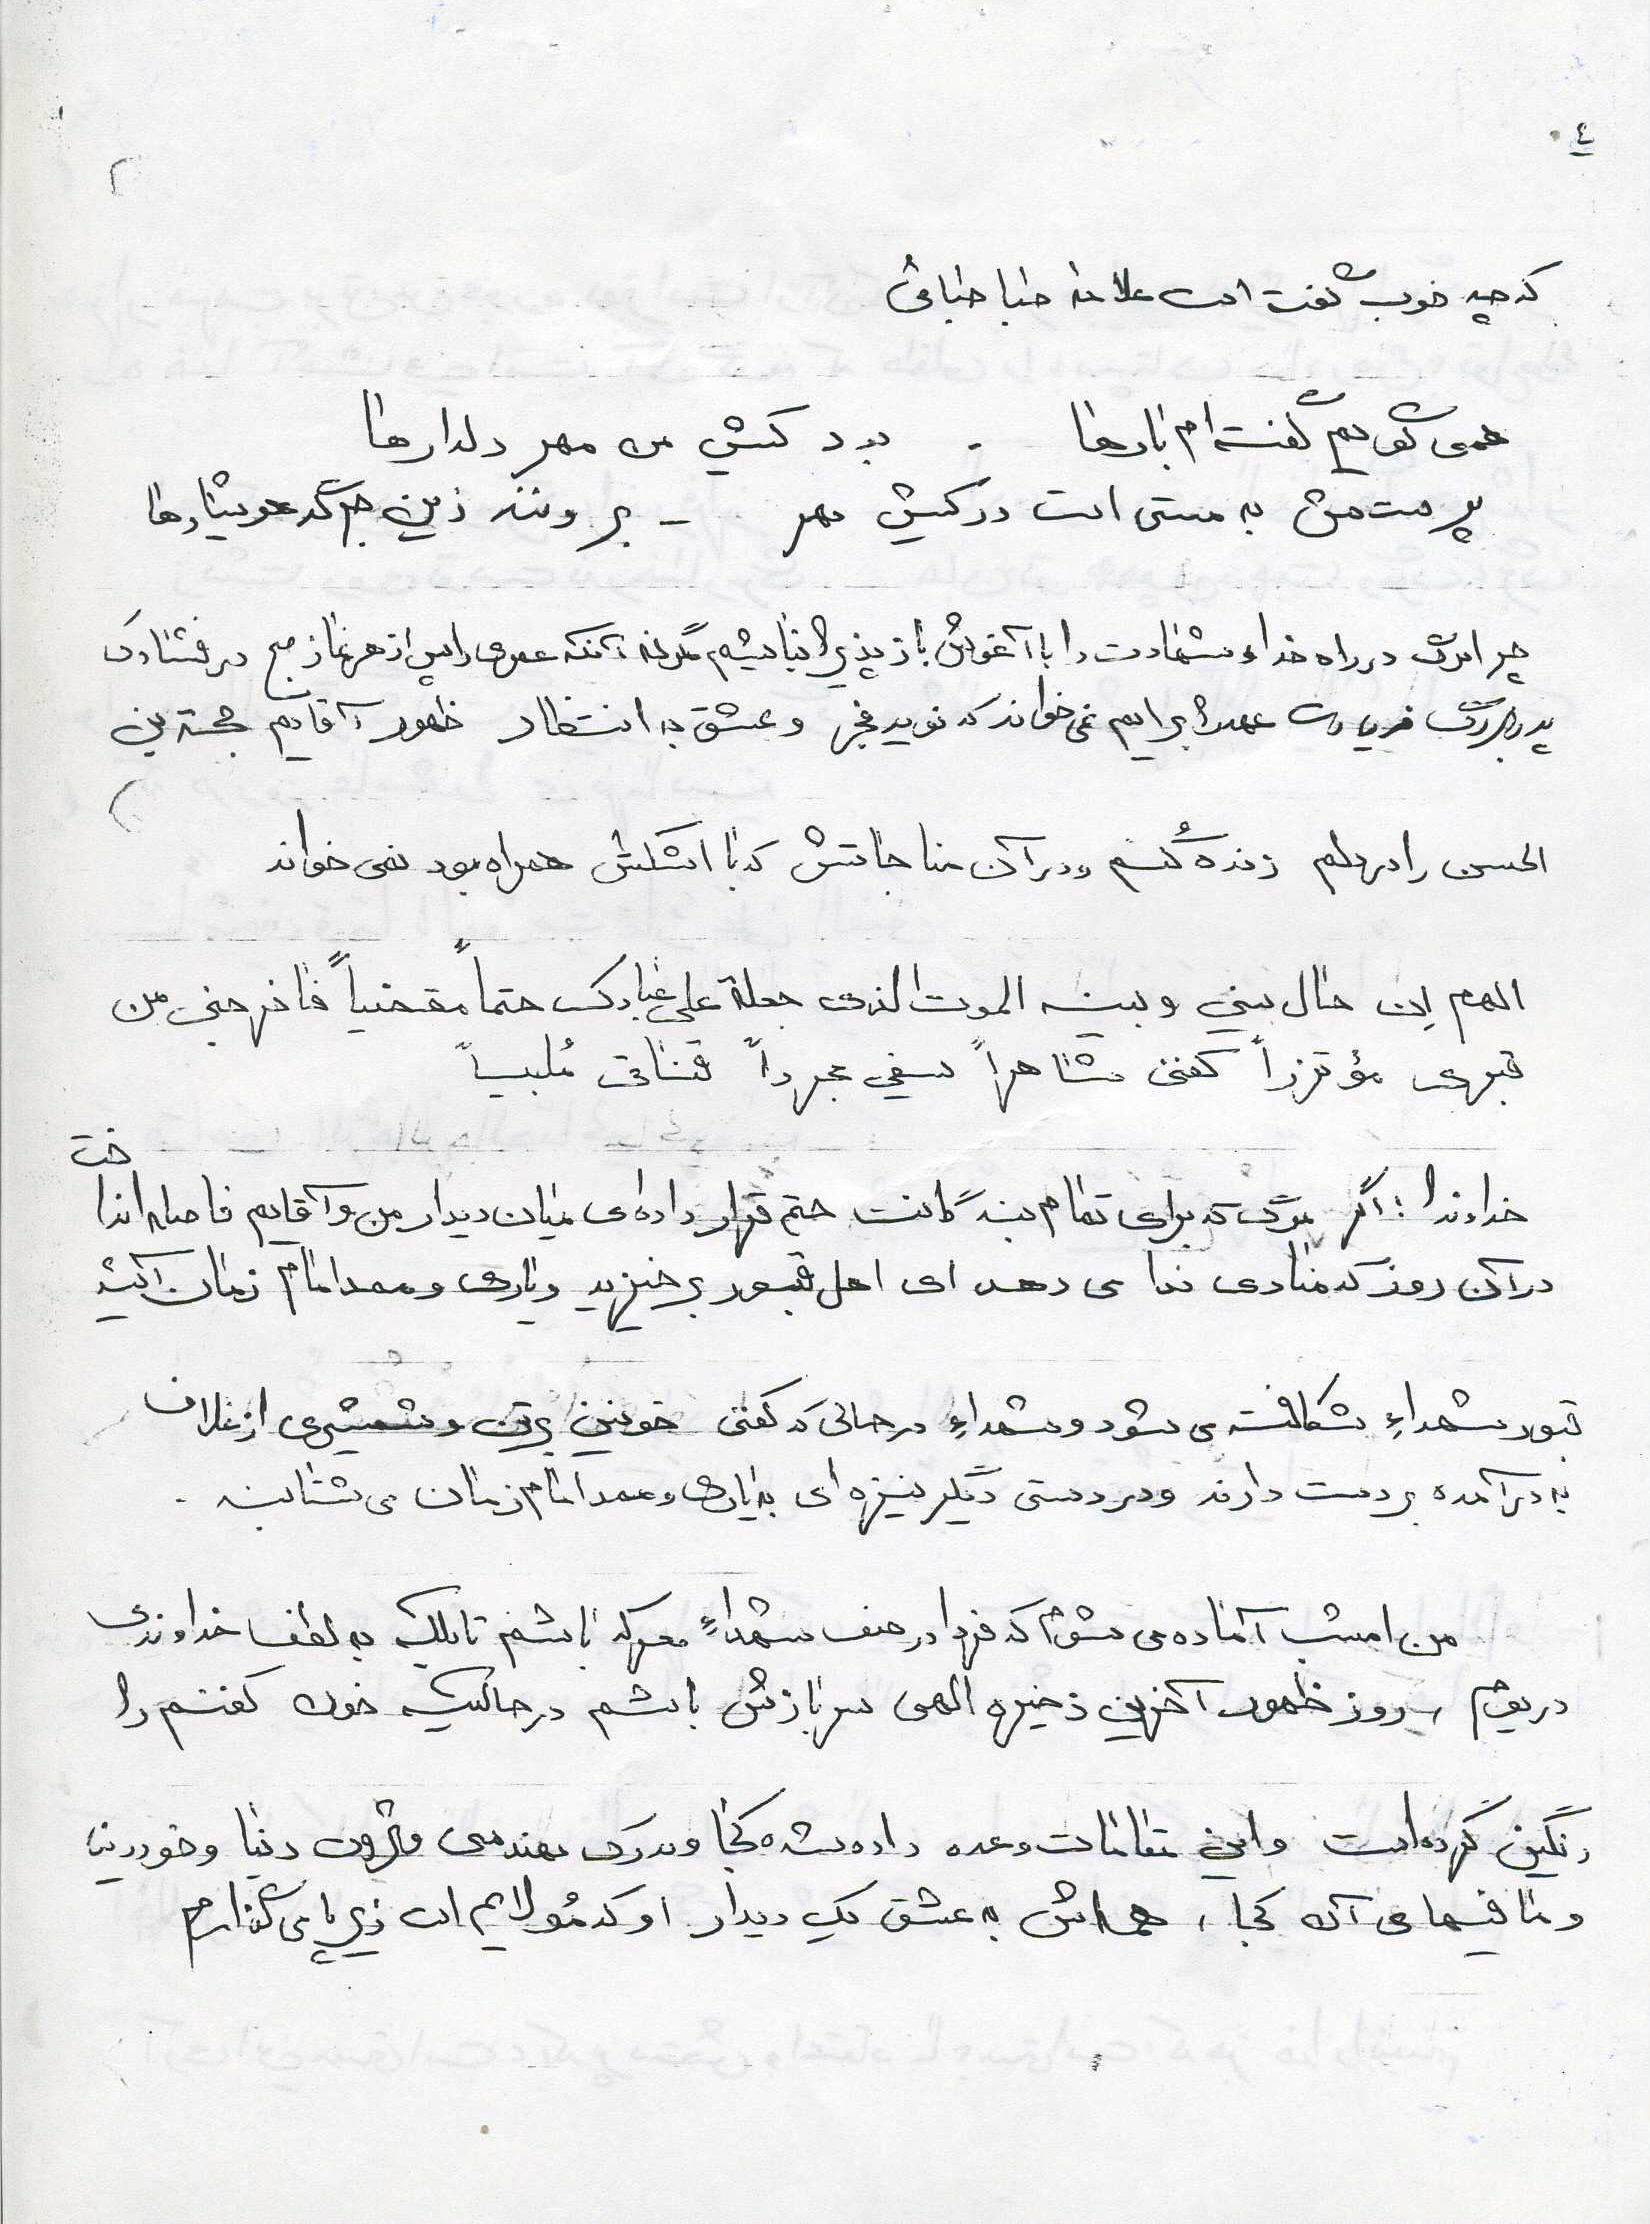 ٤
که چه خوب گفت است علامه طباطبائی
همی گویم گفته ام بارها . بود کیش من مهر دلدارها
پرستش به مستی است در کیش مهر - برونند زین جرگه هوشیارها
چرا مرگ در راه خدا و شهادت را با آغوش باز پذیرا نباشیم مگر نه آنکه عمری را پس از هر نماز صبح در
پدربزرگ عهد را برایم نمی خواند که نوید فجر و عشق به انتظار ظهور آقایم حجة بن
الحسن را در دلم زنده کُنم و در آن مناجاتش که با اشکش همراه بود نمی خواند
الهم اِن حال بيني و بينه الموت الذی جعلة علی عبادک حتماً مقضیاً فاخرجنی من
قبری مؤتزراً کفنی شاهراً سیفی مجرداً قناتی مُلبیاً
خداوندا ! اگر مرگ که برای تمام بندگانت حتم قرار داده ای میان دیدار من و آقایم فاصله انداخت
در آن روز که منادی ندا می دهد ای اهل قبور برخیزید و یاری و مدد امام زمان کنید
قبور شهداء شکافته می شود و شهداء در حالی که کفنی خونین بر تن و شمشیری از غلاف
به در آمده بر دست دارند و در دستی دیگر نیزه ای به یاری و مدد امام زمان می شتابند .
من امشب آماده می شوم که فردا در صف شهداء معرکه باشم تا بلکه به لطف خداوندی
در روز ظهور آخرین ذخیره الهی سربازش باشم در حالیکه خون کفنم را
رنگین کرده است و این مقامات وعده داده شده کجا و مدرک مهندسی و دنیا و خود دنیا
و مافیهای آن کجا ، همه اش به عشق یک دیدار او که مُولایم است زیر پا می گذارم